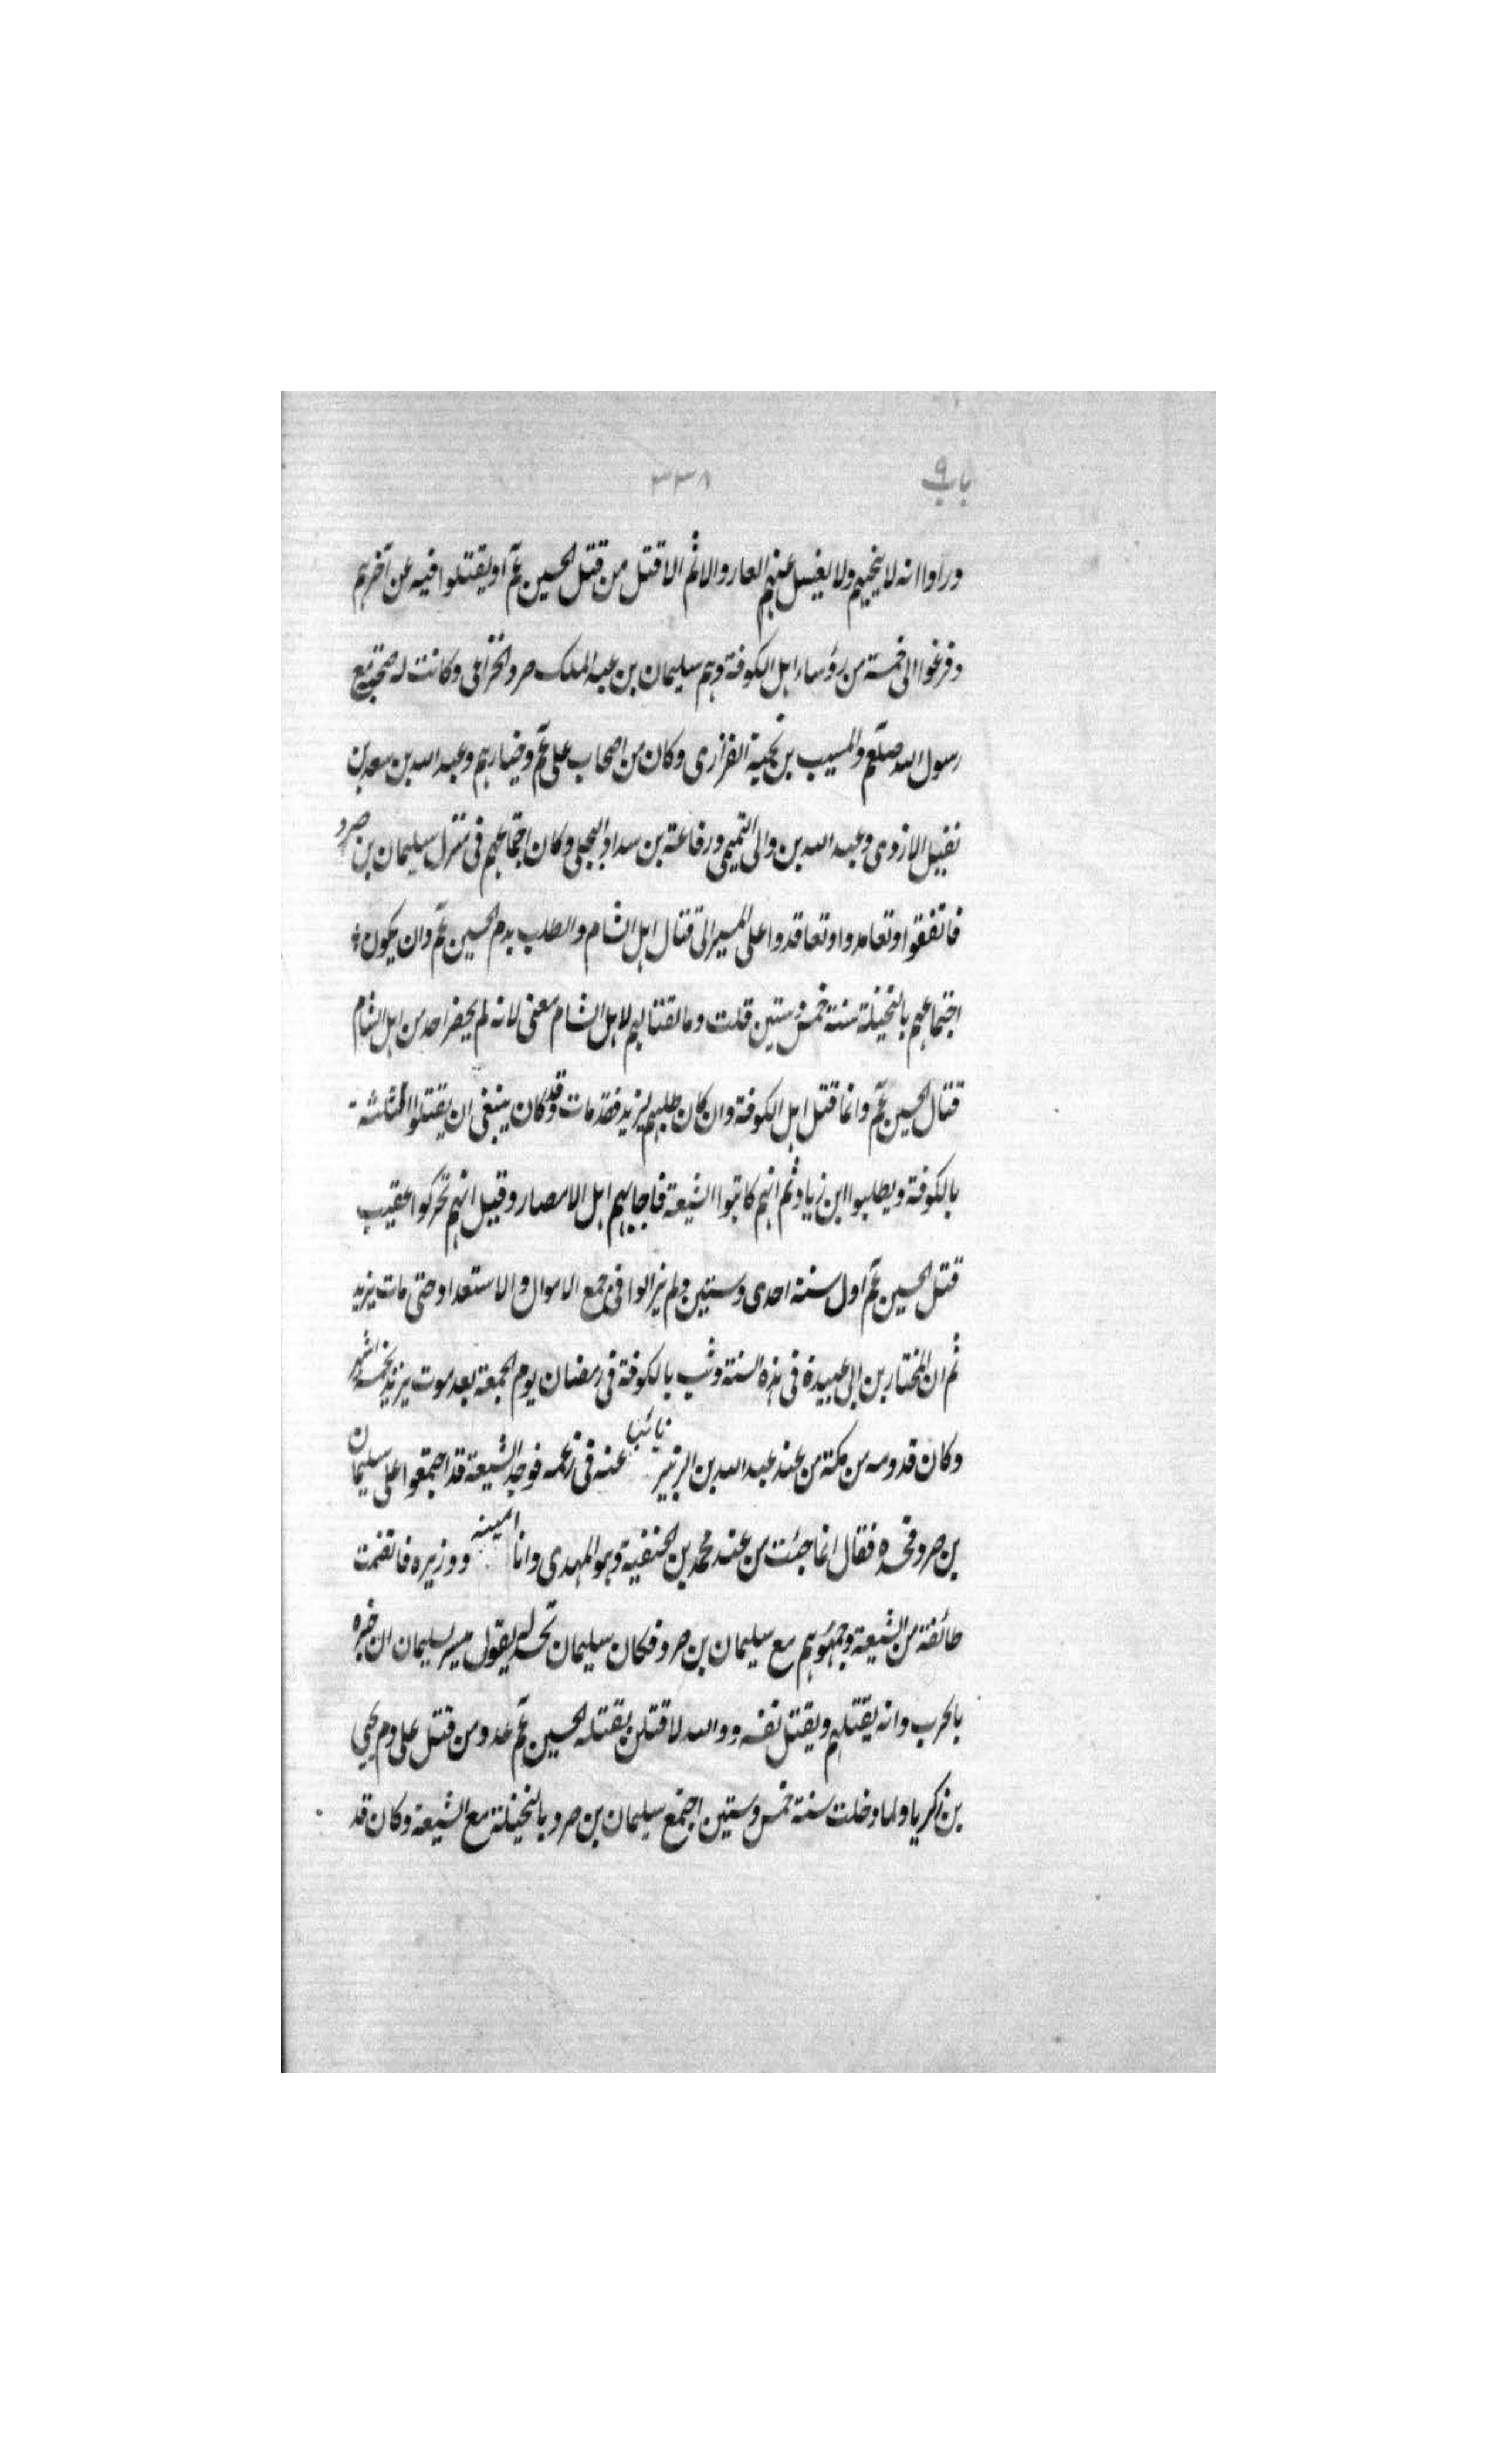 باب ٩ ٣٣٨
وراوا انه لا ينجيهم ولا يغسل عنهم العار والاثم الا قتل من قتل الحسين عم او يقتلوا فيه عن آخرهم
وفزعوا الى خمسة من رؤساء اهل الكوفة وهم سليمان بن عبد الملك صرد الخزاعى وكانت له صحبة مع
رسول الله صلعم والمسيب بن نجبة الفزارى وكان من اصحاب على عم وخيارهم وعبد الله بن سعد بن
نفيل الازدى وعبد الله بن والى التميمى ورفاعة بن سداد البجلى وكان اجتماعهم فى منزل سليمان بن صرد
فاتفقوا وتعاهدوا وتعاقدوا على المسير الى قتال اهل الشام والطلب بدم الحسين عم وان يكون
اجتماعهم بالنخيلة سنة خمس وستين قلت وما لقتالهم لاهل الشام معنى لانه لم يحضر احد من اهل الشام
قتال الحسين عم وانما قتل اهل الكوفة وان كان طلبهم ليزيد فقد مات وقد كان ينبغى ان يقتلوا
بالكوفة ويطلبوا ابن زياد ثم انهم كاتبوا الشيعة فاجابهم اهل الامصار وقيل انهم تحركوا عقيب
قتل الحسين عم اول سنة احدى وستين ولم يزالوا فى جمع الاموال والاستعداد حتى مات يزيد
ثم ان المختار بن ابى عبيدة فى هذه السنة وثب بالكوفة فى رمضان يوم الجمعة بعد موت يزيد بخمسة اشهر
وكان قدومه من مكة من عند عبد الله بن الزبير نائبا عنه فى زعمه فوجد الشيعة قد اجتمعوا على سليمان
بن صرد فحسده فقال انما جئت من عند محمد بن الحنفية وهو المهدى وانا امينه ووزيره فانضمت
طائفة من الشيعة وجمهورهم مع سليمان بن صرد فكان سليمان يقول ميسر سليمان خبره
بالحرب وانه يقتلهم ويقتل نفسه ووالله لاقتلن بقتله الحسين عم عدد من قتل على دم يحيى
بن زكريا ولما دخلت سنة خمس وستين اجتمع سليمان بن صرد بالنخيلة مع الشيعة وكان قد